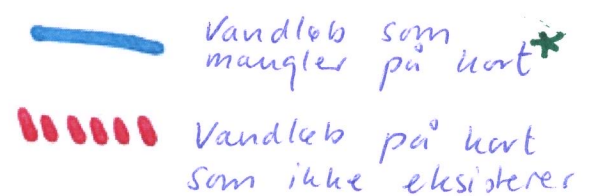 Vandløb som
mangler på kort*
Vandløb på kort
som ikke eksisterer